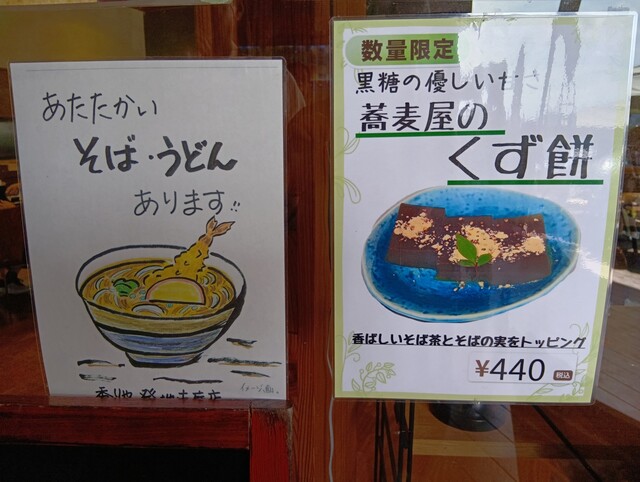 あたたかい
そば・うどん
あります!!
イメージ画
数量限定
黒糖の優しい甘さ
蕎麦屋の
くず餅
香ばしいそば茶とそばの実をトッピング
¥440 税込